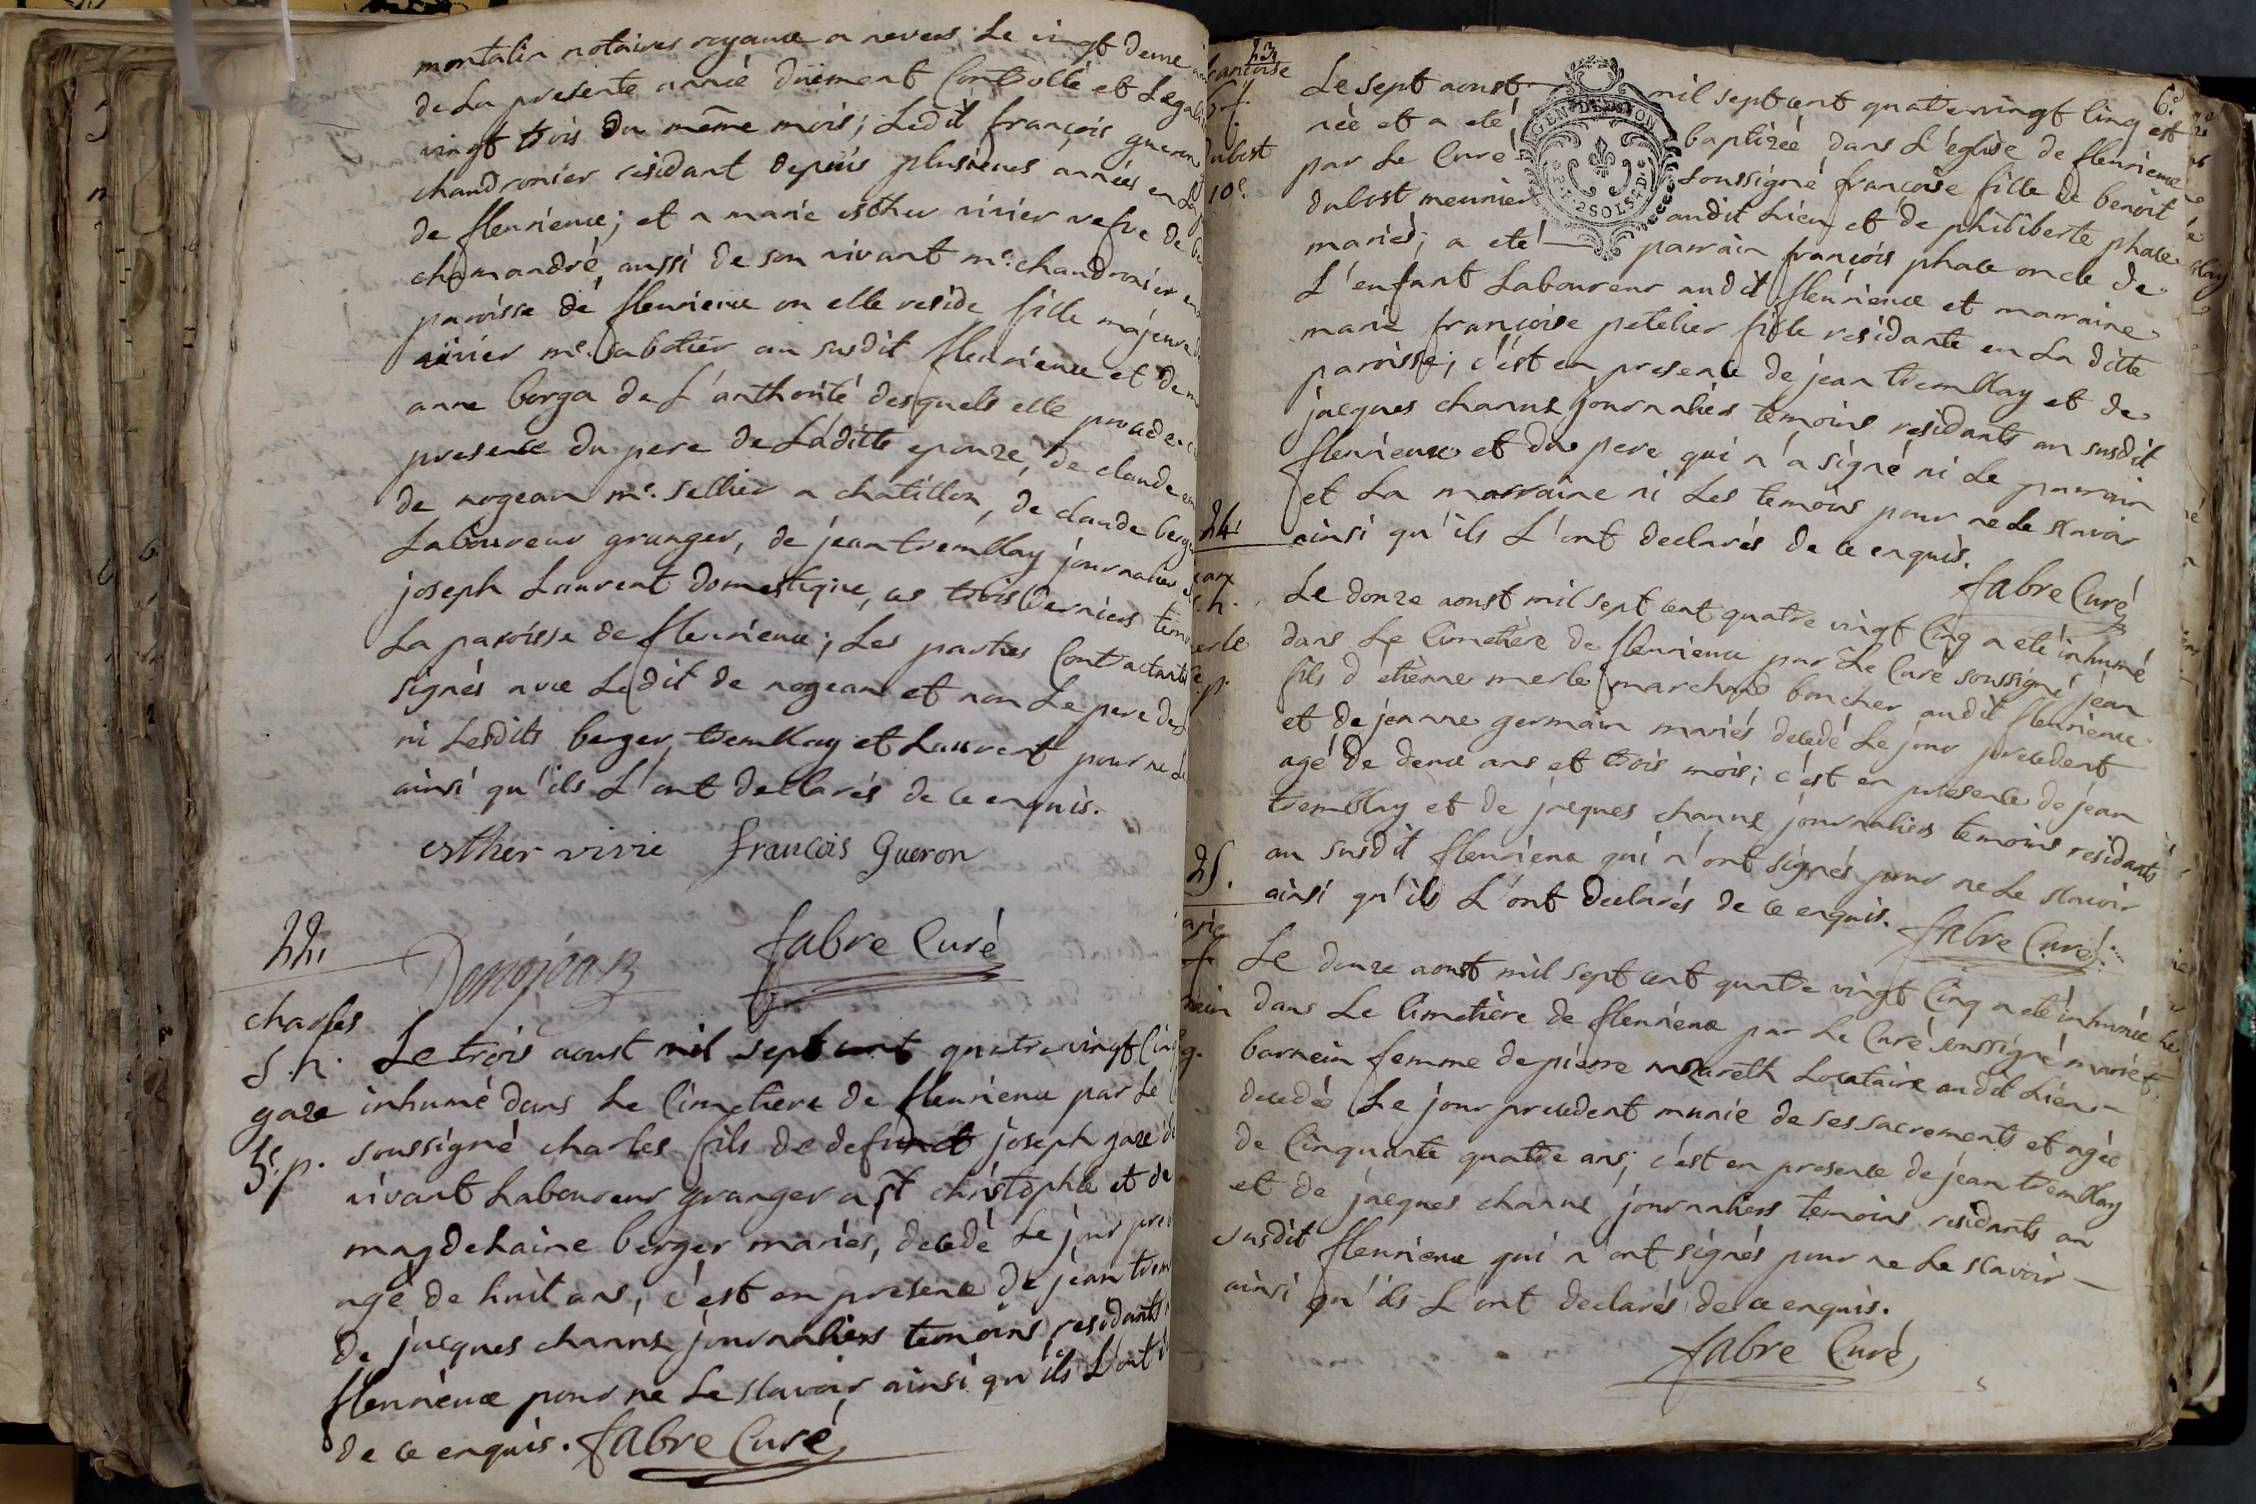 montalin notaires royaux a nevers; Le vingt deux
de La presente année düement Controllé et Legal
vingt trois du même mois; Ledit françois gueron
chaudronier residant depuis plusieurs années en La
de fleurieux; et a marie esther vivier vefve de
chamandré aussi de son vivant me. chaudronier en
paroisse de fleurieux ou elle reside fille majeure
vivier me. sabotier au susdit fleurieux et de
anne borga de L'authorité desquels elle procede
presence du pere de Laditte epouze, de claude
de nogean me. sellier a chatillon, de claude berger
Laboureur granger, de jean tremblay journalier
joseph Laurent domestique, ces trois derniers
La paroisse de fleurieux; Les parties Contractantes
signés avec Ledit de nogean et non Le pere de
ni Lesdits berger, tremblay et Laurent pour ne
ainsi qu'ils L'ont dellarés de ce enquis.
esther vivie françois Gueron
22.
Denojean fabre Curé
charles
S. h.
gaze
5e. p.
Le trois aoust mil sept cent quatre vingt Cinq
inhumé dans Le Cimetiere de fleurieux par Le
soussigné charles fils de defunct joseph gaze
vivant Laboureur granger a st christophle et de
magdelaine berger mariés, decedé Le jour
agé de huit ans, c'est en presence de jean
de jacques charnx journaliers temoins residants
fleurieux pour ne Le sçavoir ainsi qu'ils L'ont
de ce enquis. fabre Curé
23
francoise
S. f.
dubost
10e.
6e
GEN DE DYON
2 SOLS
Le sept aoust mil sept cent quatre vingt Cinq est
née et a eté baptizée dans L'église de fleurieux
par Le Curé soussigné françoise fille de benoit
dubost meunier audit Lieu et de philiberte phale
mariés; a eté parrain françois phale oncle de
L'enfant Laboureur audit fleurieux et marraine
marie françoise petelier fille residante en La ditte
paroisse; c'est en presence de jean tremblay et de
jacques charnx journaliers temoins residants au susdit
fleurieux et du pere qui n'a signé ni Le parrain
et La marraine ni Les temoins pour ne Le sçavoir
ainsi qu'ils L'ont declarés de ce enquis.
fabre Curé
24
Le douze aoust mil sept cent quatre vingt Cinq a eté inhumé
dans Le Cimetière de fleurieux par Le Curé soussigné jean
fils d'étienne merle marchand boucher audit fleurieux
et de jeanne germain mariés decedé Le jour precedent
agé de deux ans et trois mois; c'est en presence de jean
tremblay et de jacques charnx journaliers temoins residants
au susdit fleurieux qui n'ont signés pour ne Le sçavoir
ainsi qu'ils L'ont declarés de ce enquis. fabre Curé
25.
Le douze aoust mil sept cent quatre vingt Cinq a eté inhumée
dans Le Cimetière de fleurieux par Le Curé soussigné marie f.
barnein femme de pierre nazareth Locataire audit Lieu
decedée Le jour precedent munie de ses sacrements et agée
de Cinquante quatre ans; c'est en presence de jean tremblay
et de jacques charnx journaliers temoins residants au
susdit fleurieux qui n'ont signés pour ne Le sçavoir
ainsi qu'ils L'ont declarés de ce enquis.
fabre Curé